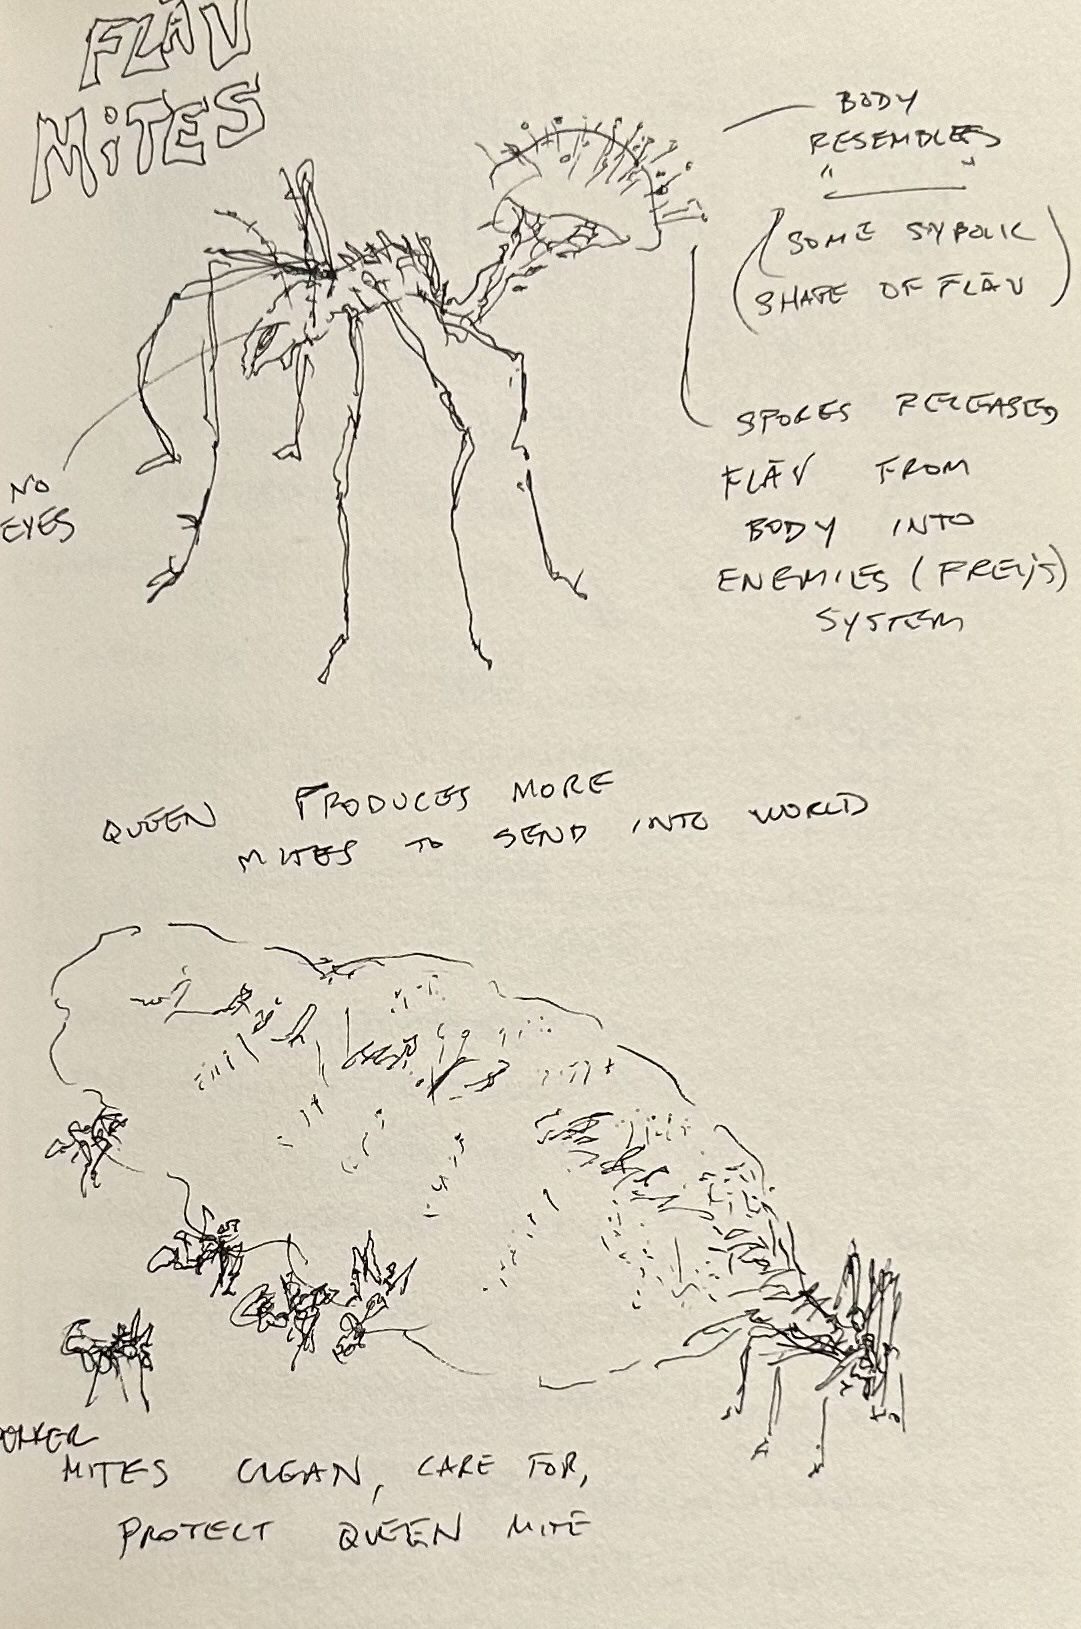 FLĀV
MiTES
BODY
RESEMBLES
" "
(SOME SYBOLIC
SHAPE OF FLĀV)
SPORES RELEASED
FLĀV FROM
BODY INTO
ENEMIES (PREY'S)
SYSTEM
NO
EYES
QUEEN PRODUCES MORE
MITES TO SEND INTO WORLD
ORKER
MITES CLEAN, CARE FOR,
PROTECT QUEEN MITE